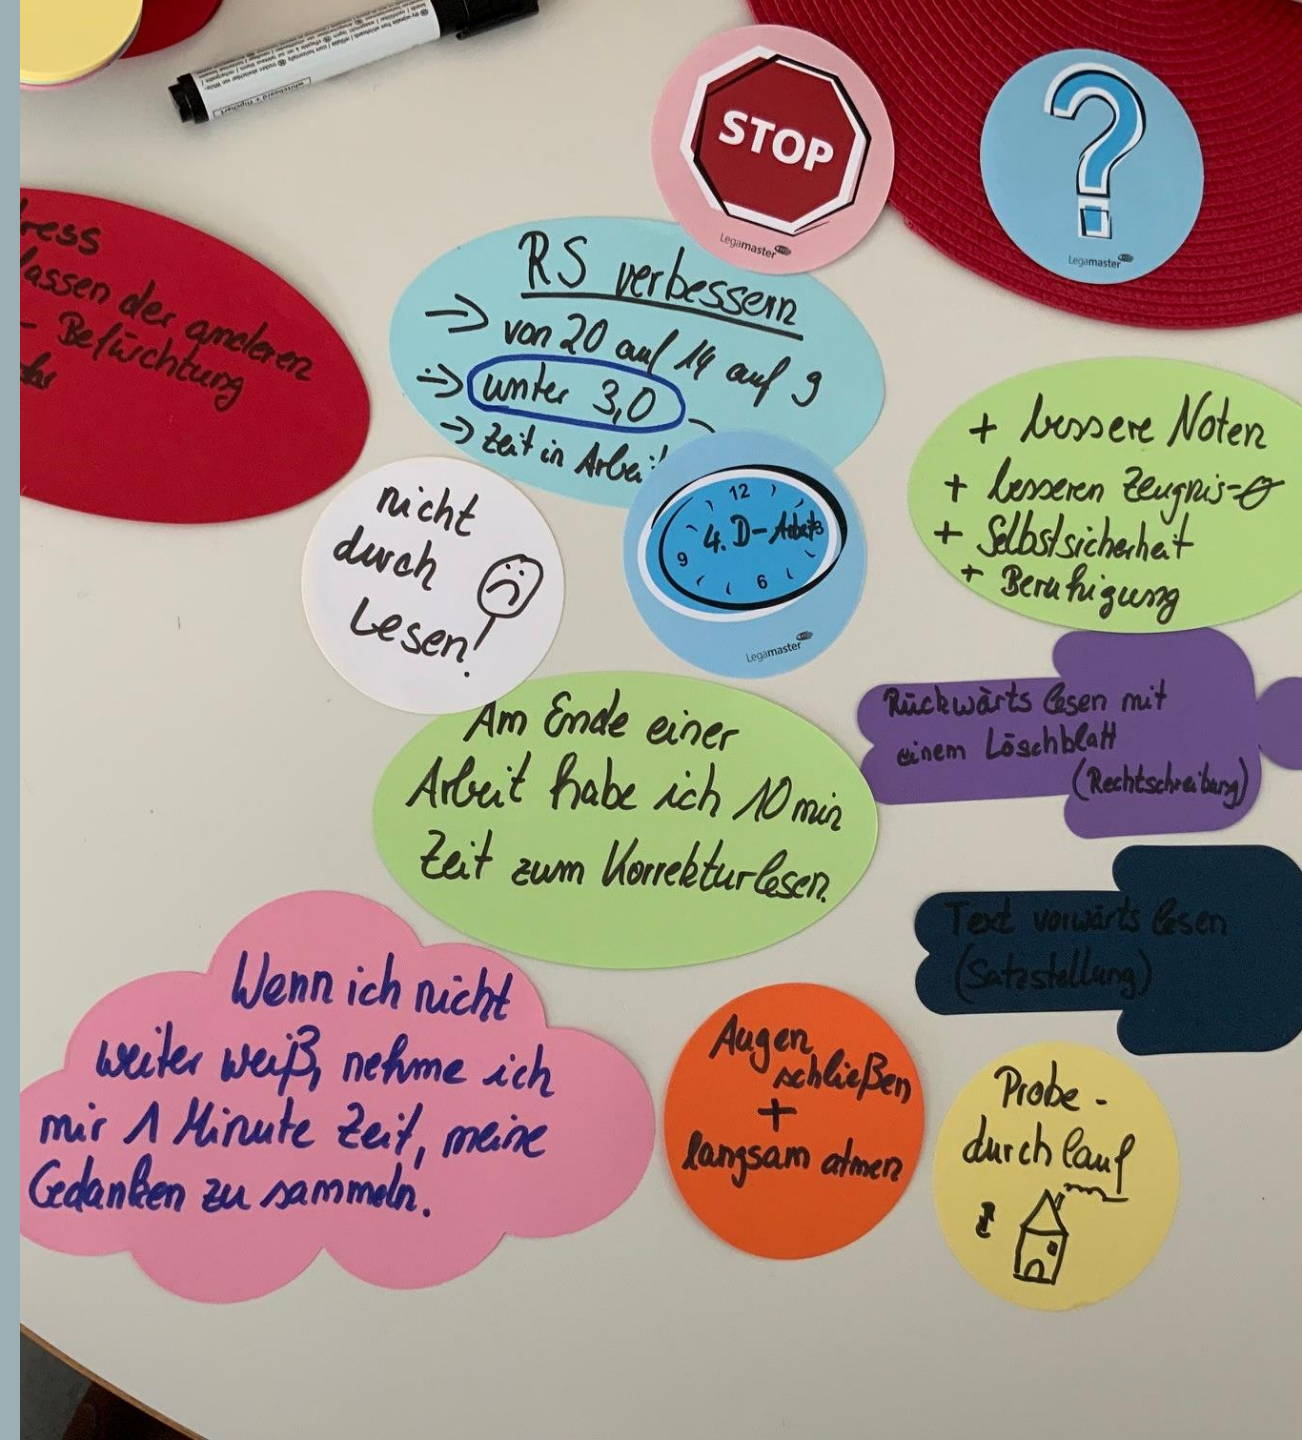 STOP
Legamaster
Legamaster
ress
lassen der anderen
- Befürchtung
RS verbessern
→ von 20 auf 14 auf 9
→ unter 3,0
→ Zeit in Arbei
12
4. D-Arbeit
3
9
6
Legamaster
+ bessere Noten
+ besseren Zeugnis-Ø
+ Selbstsicherheit
+ Beruhigung
nicht
durch
Lesen!
Am Ende einer
Arbeit habe ich 10 min
Zeit zum Korrekturlesen.
Rückwärts lesen mit
einem Löschblatt
(Rechtschreibung)
Text vorwärts lesen
(Satzstellung)
Wenn ich nicht
weiter weiß, nehme ich
mir 1 Minute Zeit, meine
Gedanken zu sammeln.
Augen
schließen
+
langsam atmen
Probe-
durchlauf